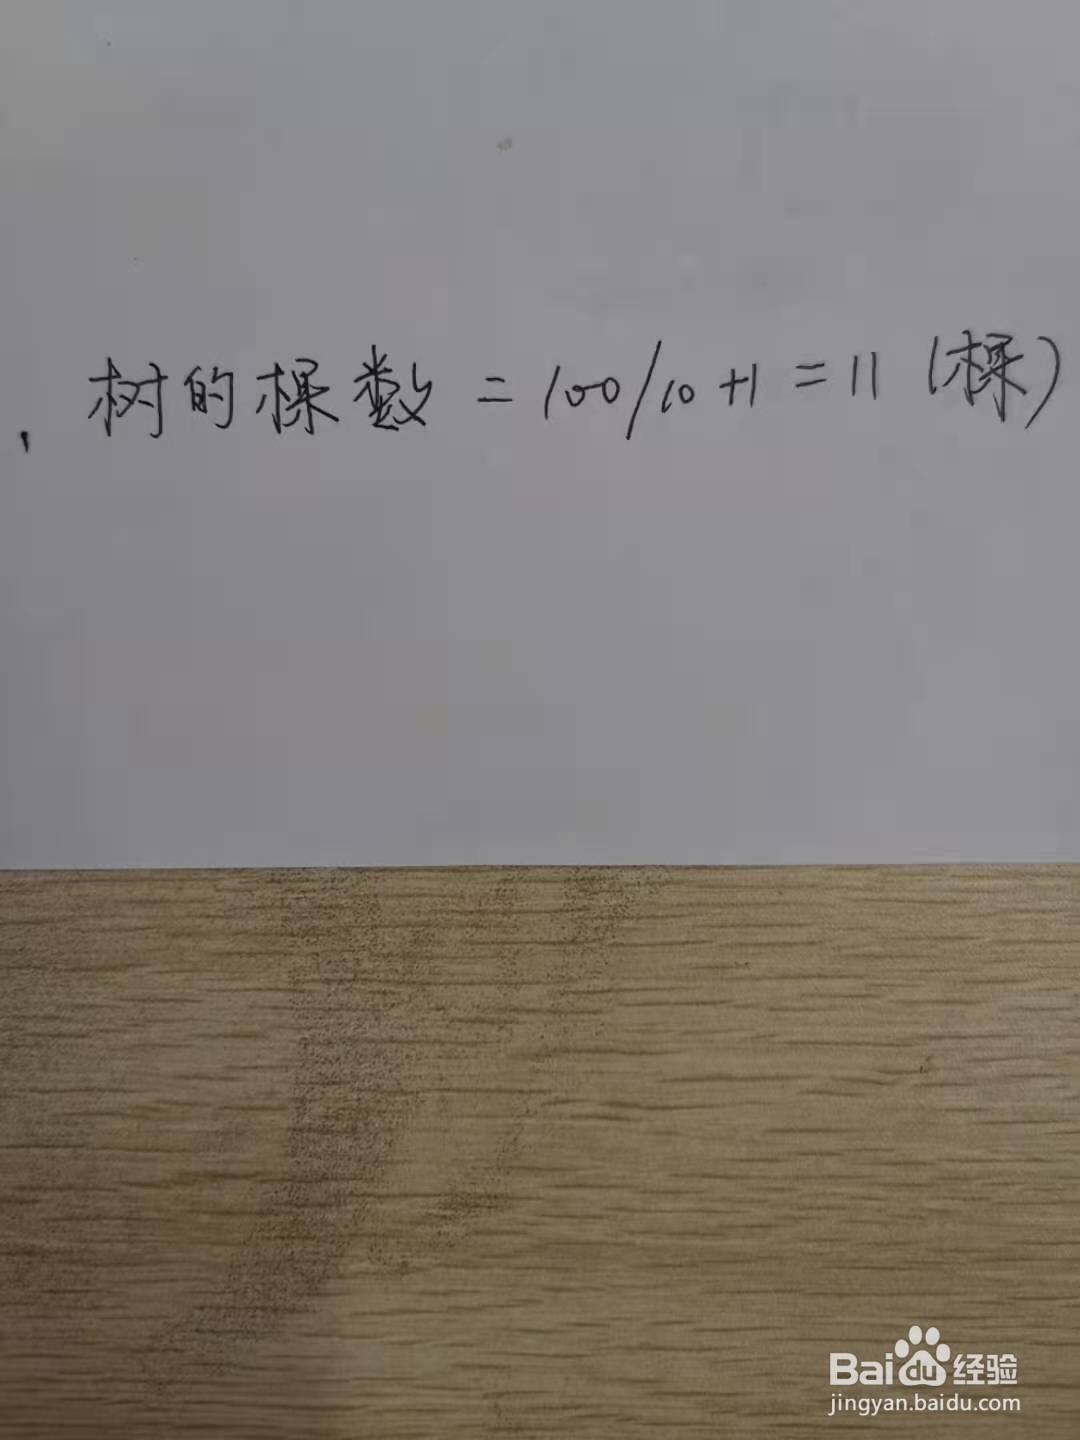 树的棵数 = 100/10 +1 = 11 (棵)
Baidu 经验
jingyan.baidu.com